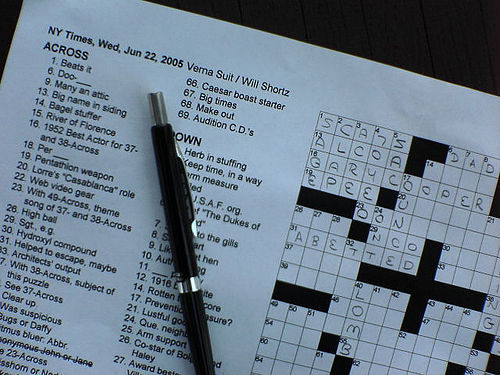 NY Times, Wed, Jun 22, 2005 Verna Suit / Will Shortz
ACROSS
1. Beats it
6. Doo-
9. Many an attic
13. Big name in siding
14. Bagel stuffer
15. River of Florence
16. 1952 Best Actor for 37-
and 38-Across
18. Per
19. Pentathlon weapon
20. Lorre's "Casablanca" role
22. Web video gear
23. With 49-Across, theme
song of 37- and 38-Across
28. High ball
29. Sgt., e.g.
30. Hydroxyl compound
31. Helped to escape, maybe
33. Architects' output
37. With 38-Across, subject of
this puzzle
See 37-Across
Clear up
Was suspicious
Bugs or Daffy
itmus bluer: Abbr.
onymous John or Jane
e 23-Across
66. Caesar boast starter
67. Big times
68. Make out
69. Audition C.D.'s
OWN
Herb in stuffing
Keep time, in a way
rm measure
ed
J.S.A.F. org.
of "The Dukes of
to the gills
art
hen
10.
11.
12. 1916
14. Rotten
17. Preventi sure?
21. Lustful go
24. Que. neigh
25. Arm support
26. Co-star of Bol and
Haley
27. Award bes
SCATS DAD
ALCOA
GARYCOOPER
EPEE
NCO
ABETTED
LOMB